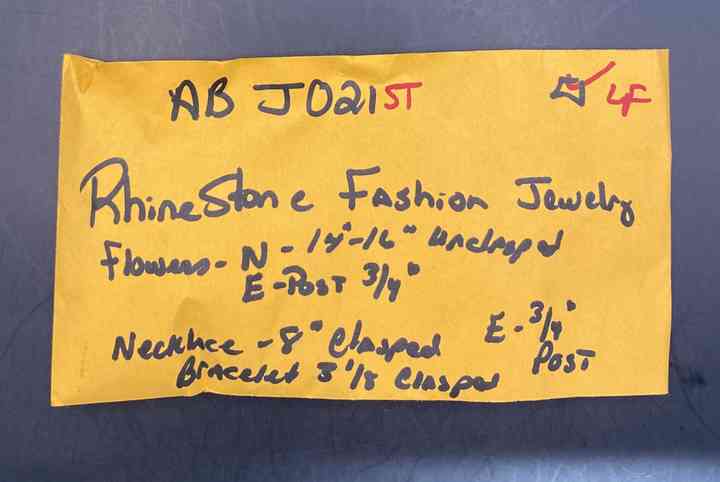 AB J021ST LF
RhineStone Fashion Jewelry
Flowers - N - 14"-16" Unclasped
E-Post 3/4"
Necklace - 8" Clasped E - 3/4"
Bracelet 3 1/8 Clasped Post